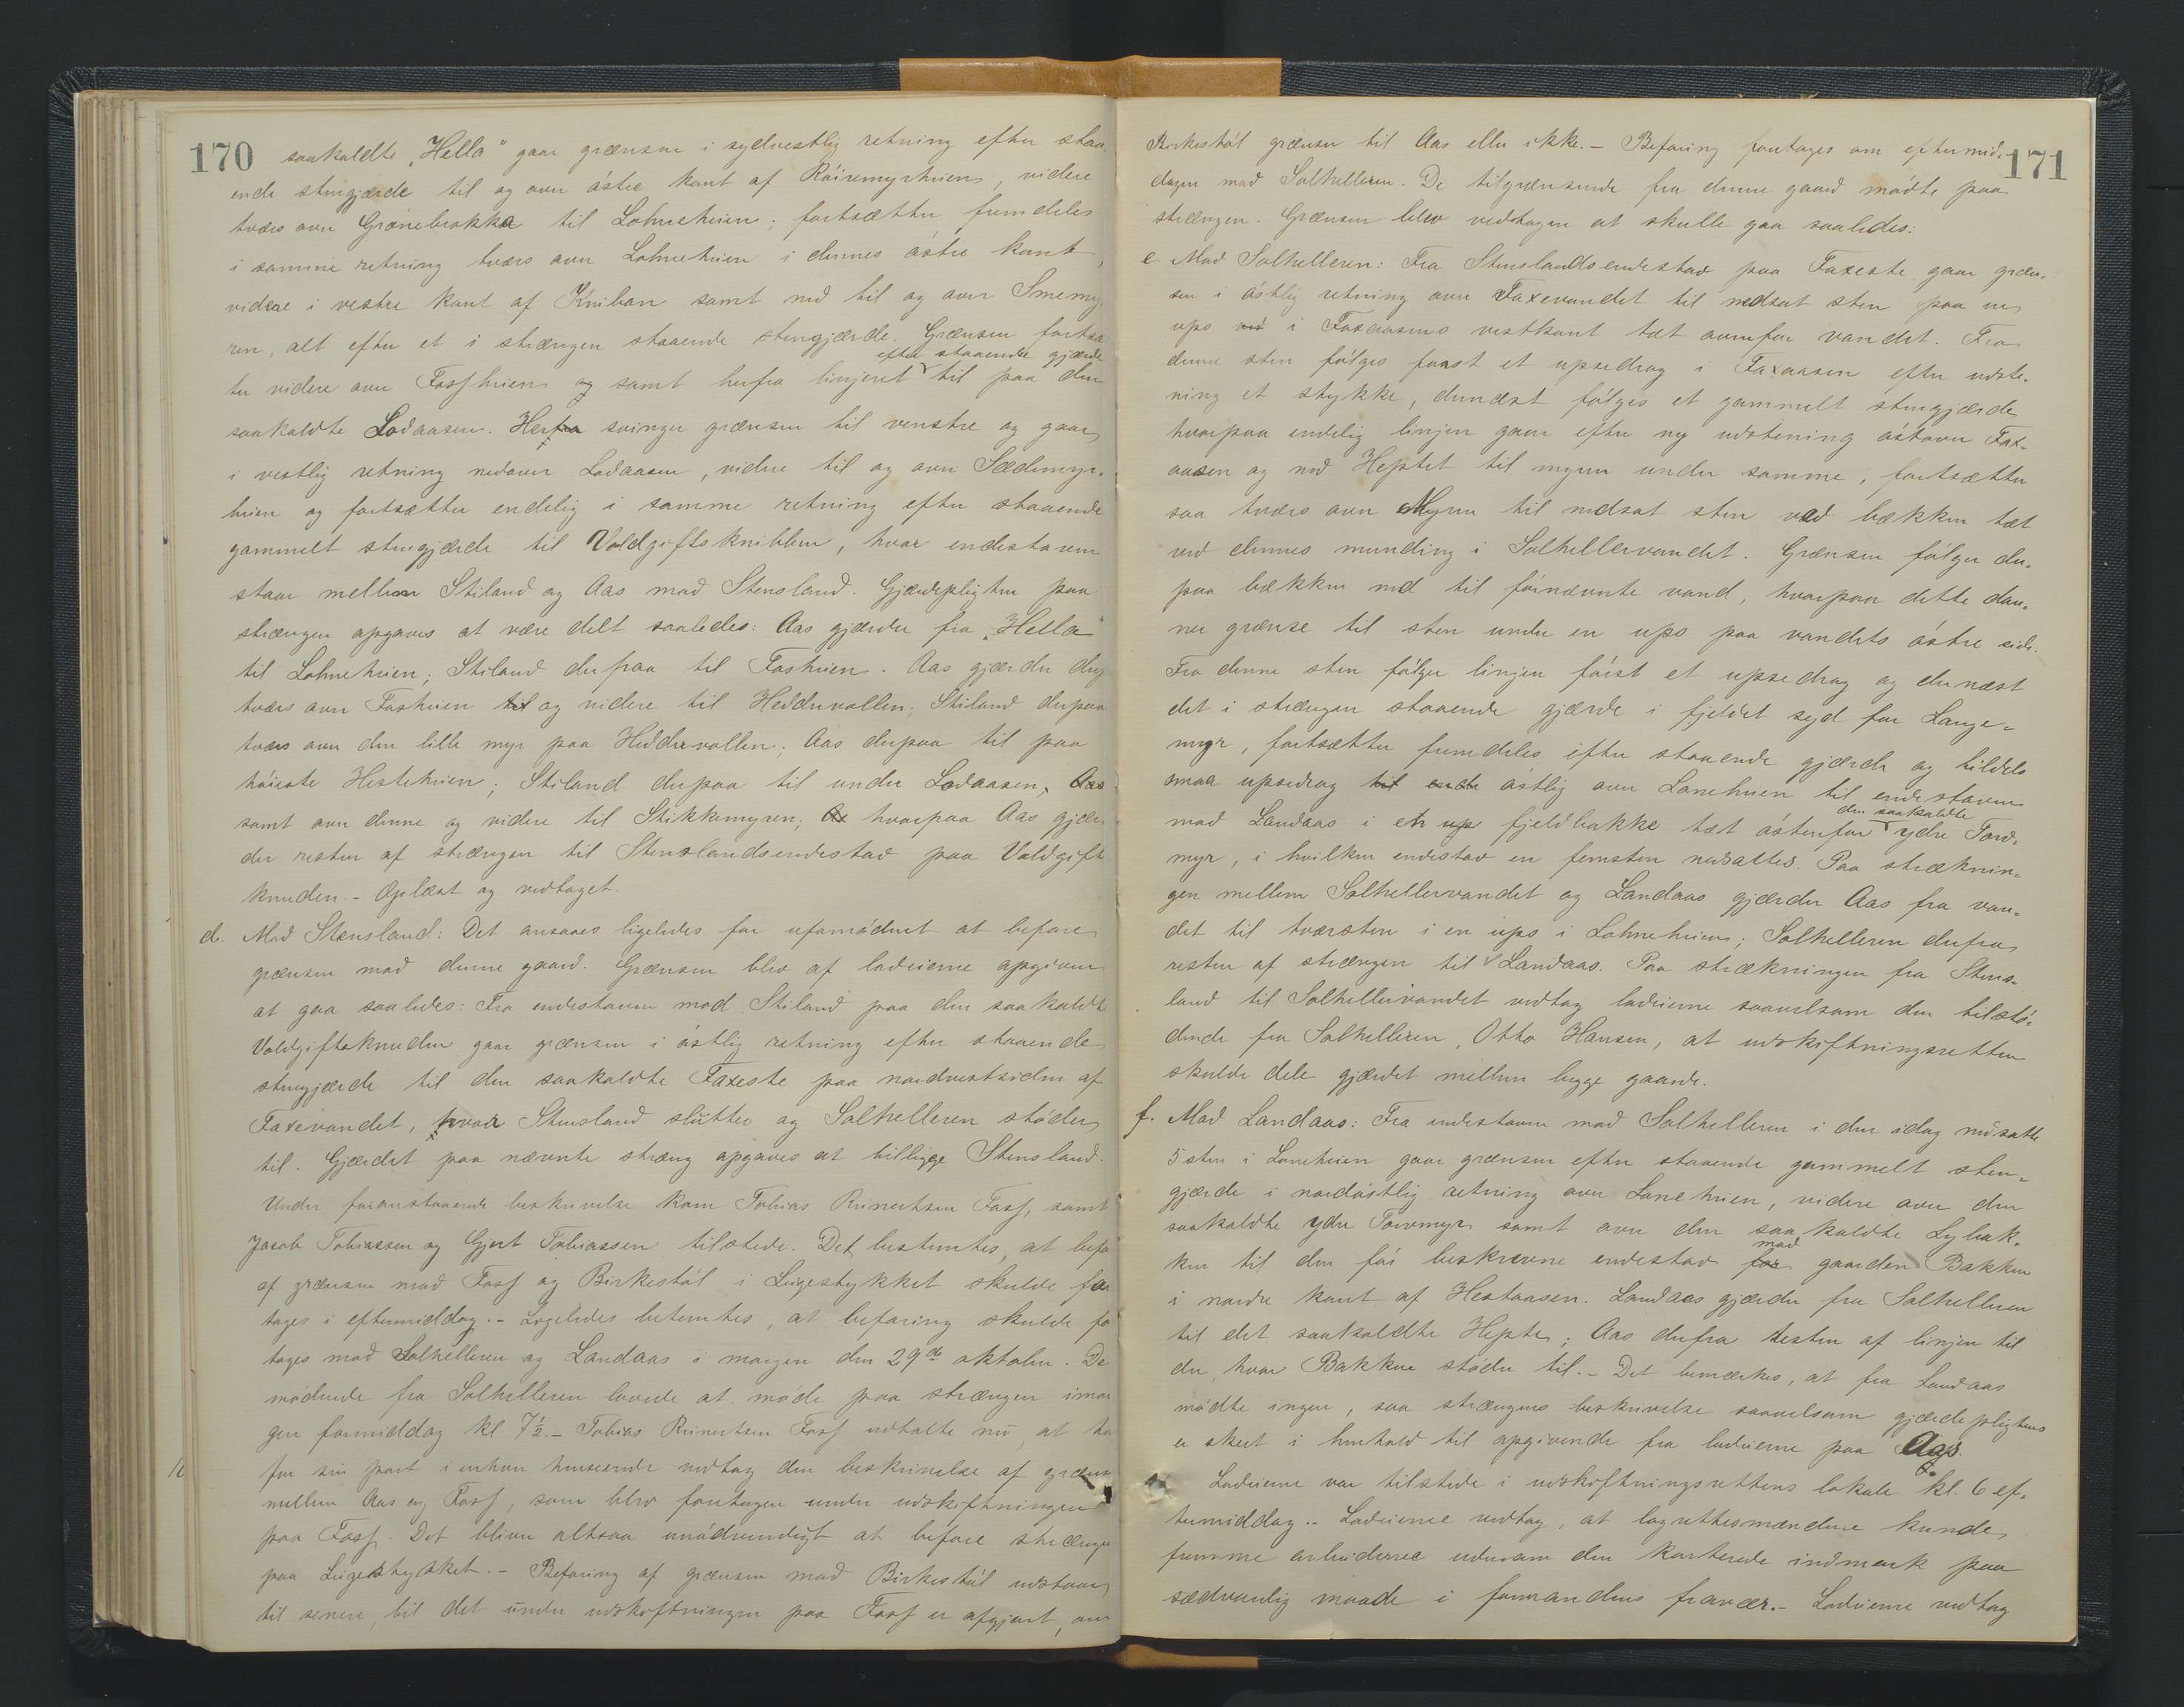 170
saakaldte „Hella" gaar grænsen i sydvestlig retning efter staa
ende stengjærde til og over østre kant af Röiremyrheien, videre
tværs over Grønebrokka til Lohneheien; fortsætter fremdeles
i samme retning tværs over Lohneheien i dennes østre kant,
videre i vestre kant af Kniban samt ned til og over Smemy-
ren, alt efter et i strængen staaende stengjærde. Grænsen fortsæ
ter videre over Fossheien og samt herfra linjeret efter staaende gjærde til paa den
saakaldte Lodaasen. Herfra svinger grænsen til venstre og gaar
i vestlig retning nedover Lodaasen, videre til og over Sædemyr-
heien og fortsætter endelig i samme retning efter staaende
gammelt stengjærde til Voldgiftsknibben, hvor endestaven
staar mellem Stiland og Aas mod Stensland. Gjærdepligten paa
strængen opgaves at være delt saaledes: Aas gjærder fra „Hella"
til Lohneheien; Stiland derfra til Fosheien. Aas gjærder der
tværs over Fosheien til og videre til Heddervollen; Stiland derpaa
tværs over den lille myr paa Heddervollen; Aas derpaa til paa
høieste Hesteheien; Stiland derpaa til under Lodaasen, Aas
samt over denne og videre til Stikkemyren; hvorpaa Aas gjær-
der resten af strængen til Stenslandsendestav paa Voldgift
knuden. – Oplæst og vedtaget.
d. Mod Stensland: Det ansaaes ligeledes for ufornødent at befare
grænsen mod denne gaard. Grænsen blev af lodeierne opgiven
at gaa saaledes: Fra endestaven mod Stiland paa den saakaldte
Voldgiftsknuden gaar grænsen i østlig retning efter staaende
stengjærde til den saakaldte Faxeste paa nordvestsiden af
Faxevandet, hvor Stensland slutter og Solhelleren støder
til. Gjærdet paa nævnte stræng opgaves at tilligge Stensland.
Under foranstaaende beskrivelse kom Tobias Reinertsen Foss, samt
Jacob Tobiassen og Gjert Tobiassen tilstede. Det bestemtes, at befa
af grænsen mod Foss og Birkestøl i Leigestykket skulde fore
tages i eftermiddag. – Ligeledes betemtes, at befaring skulde fo
tages mod Solhelleren og Landaas i morgen den 29de oktober. De
mødende fra Solhelleren lovede at møde paa strængen imor
gen formiddag kl 7½. – Tobias Reinertsen Foss udtalte nu, at ha
for sin part i enhver henseende vedtog den beskrivelse af græns
mellem Aas og Foss, som blev foretagen under udskiftningen
paa Foss. Det bliver altsaa unødvendigt at befare strænge
paa Leigestykket. – Befaring af grænsen mod Birkestøl udstaar
til senere, til det under udskiftningen paa Foss er afgjort, om
171
Birkestøl grænser til Aas eller ikke. – Befaring foretages om eftermid-
dagen mod Solhelleren. De tilgrænsende fra denne gaard mødte paa
strængen. Grænsen blev vedtagen at skulle gaa saaledes:
e. Mod Solhelleren: Fra Stenslandsendestav paa Faxeste gaar græn-
sen i østlig retning over Faxevandet til nedsat sten paa en
ups ved i Faxaasens vestkant tæt ovenfor vandet. Fra
denne sten følges først et upsedrag i Faxaasen efter udste-
ning et stykke, dernæst følges et gammelt stengjærde
hvorpaa endelig linjen gaar efter ny udstening østover Fax-
aasen og ned Heptet til myren under samme, fortsætter
saa tværs over Myren til nedsat sten ved bækken tæt
ved dennes munding i Solhellervandet. Grænsen følger der-
paa bækken ned til førnævnte vand, hvorpaa dette dan-
ner grænse til sten under en ups paa vandets østre side.
Fra denne sten følger linjen først et upsedrag og dernæst
det i strængen staaende gjærde i fjeldet syd for Lange-
myr, fortsætter fremdeles efter staaende gjærde og tildels
smaa upsedrag til ende østlig over Laneheien til endestaven
mod Landaas i en ups fjeldbakke tæt østenfor den saakaldte ydre Torv-
myr, i hvilken endestav en femsten nedsattes. Paa stræknin-
gen mellem Solhellervandet og Landaas gjærder Aas fra van-
det til tværsten i en ups i Lohneheien; Solhelleren derfra
resten af strængen til Landaas. Paa strækningen fra Stens-
land til Solhellervandet vedtog lodeierne saavelsom den tilstø-
dende fra Solhelleren, Otto Hansen, at udskiftningsretten
skulde dele gjærdet mellem begge gaarde.
f. Mod Landaas: Fra endestaven mod Solhelleren i den idag nedsatte
5sten i Laneheien gaar grænsen efter staaende gammelt sten-
gjærde i nordøstlig retning over Laneheien, videre over den
saakaldte ydre Torvmyr samt over den saakaldte Lybak-
ken til den før beskrevne endestav for mod gaarden Bakken
i nordre kant af Hestaasen. Landaas gjærder fra Solhelleren
til det saakaldte Hepte; Aas derfra resten af linjen til
der, hvor Bakken støder til. – Det bemærkes, at fra Landaas
mødte ingen, saa strængens beskrivelse saavelsom gjærdepligtens
er skeet i henhold til opgivende fra lodeierne paa Aas.
Lodeierne var tilstede i udskiftningsrettens lokale kl. 6 ef-
termiddag. – Lodeierne vedtog, at lagrettesmændene kunde
fremme arbeiderne udenom den karterede indmark paa
sædvanlig maade i formandens fravær. – Lodeierne vedtog